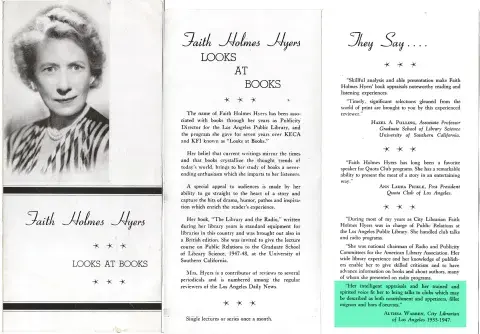 Faith Holmes Hyers
LOOKS AT BOOKS
Faith Holmes Hyers
LOOKS
AT
BOOKS
The name of Faith Holmes Hyers has been asso-
ciated with books through her years as Publicity
Director for the Los Angeles Public Library, and
the program she gave for seven years over KECA
and KFI known as "Looks at Books."
Her belief that current writings mirror the times
and that books crystallize the thought trends of
today's world, brings to her study of books a never-
ending enthusiasm which she imparts to her listeners.
A special appeal to audiences is made by her
ability to go straight to the heart of a story and
capture the bits of drama, humor, pathos and inspira-
tion which enrich the reader's experience.
Her book, "The Library and the Radio," written
during her library years is standard equipment for
libraries in this country and was brought out also in
a British edition. She was invited to give the lecture
course on Public Relations to the Graduate School
of Library Science, 1947-48, at the University of
Southern California.
Mrs. Hyers is a contributor of reviews to several
periodicals and is numbered among the regular
reviewers of the Los Angeles Daily News.
Single lectures or series once a month.
They Say....
"Skillful analysis and able presentation make Faith
Holmes Hyers' book appraisals noteworthy reading and
listening experiences.
"Timely, significant selections gleaned from the
world of print are brought to you by this experienced
reviewer."
HAZEL A. PULLING, Associate Professor
Graduate School of Library Science
University of Southern California.
"Faith Holmes Hyers has long been a favorite
speaker for Quota Club programs. She has a remarkable
ability to present the meat of a story in an entertaining
way."
ANN LAIDIA PIERCE, Past President
Quota Club of Los Angeles.
"During most of my years as City Librarian Faith
Holmes Hyers was in charge of Public Relations at
the Los Angeles Public Library. She handled club talks
and radio programs.
"She was national chairman of Radio and Publicity
Committees for the American Library Association. Her
wide library experience and her knowledge of publish-
ers enable her to give skilled criticism and to have
advance information on books and about authors, many
of whom she presented on radio programs.
"Her intelligent appraisals and her trained and
spirited voice fit her to bring talks to clubs which may
be described as both nourishment and appetizers, fillet
mignon and hors d'oeuvres."
ALTHEA WARREN, City Librarian
of Los Angeles 1933-1947.